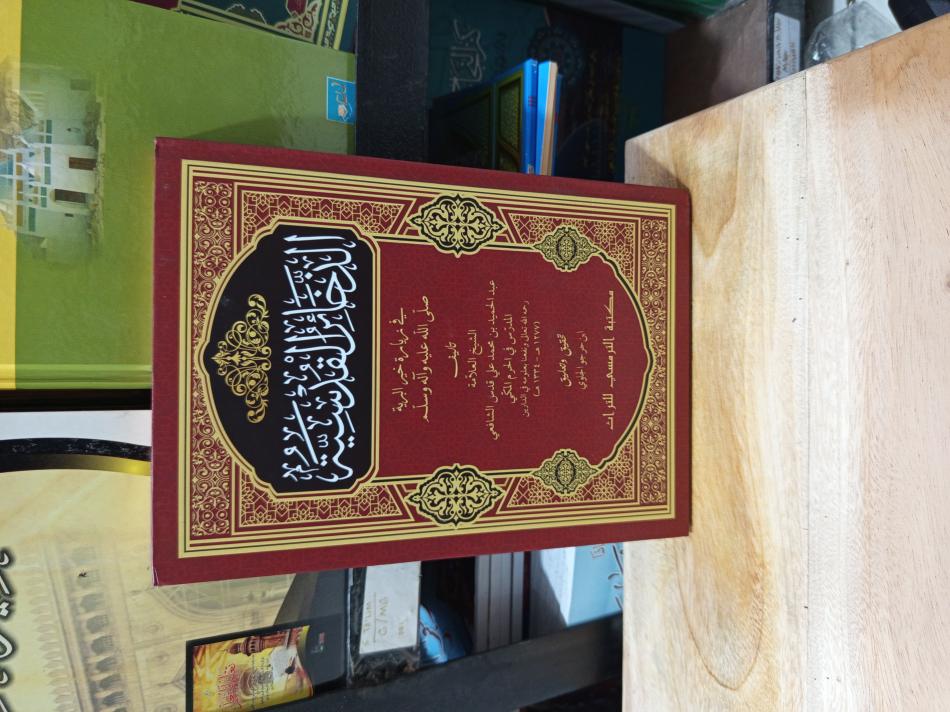 الذخائر القدسية
في زيارة خير البرية
صلى الله عليه وآله وسلم
تأليف
الشيخ العلامة
عبد الحميد بن محمد علي قدس الشافعي
المدرس في الحرم المكي
رحمه الله تعالى ونفعنا بعلومه في الدارين
(١٢٧٧ هـ - ١٣٣٤ هـ)
تحقيق وتعليق
ابن حرجو الجاوي
مكتبة الترمسي للتراث